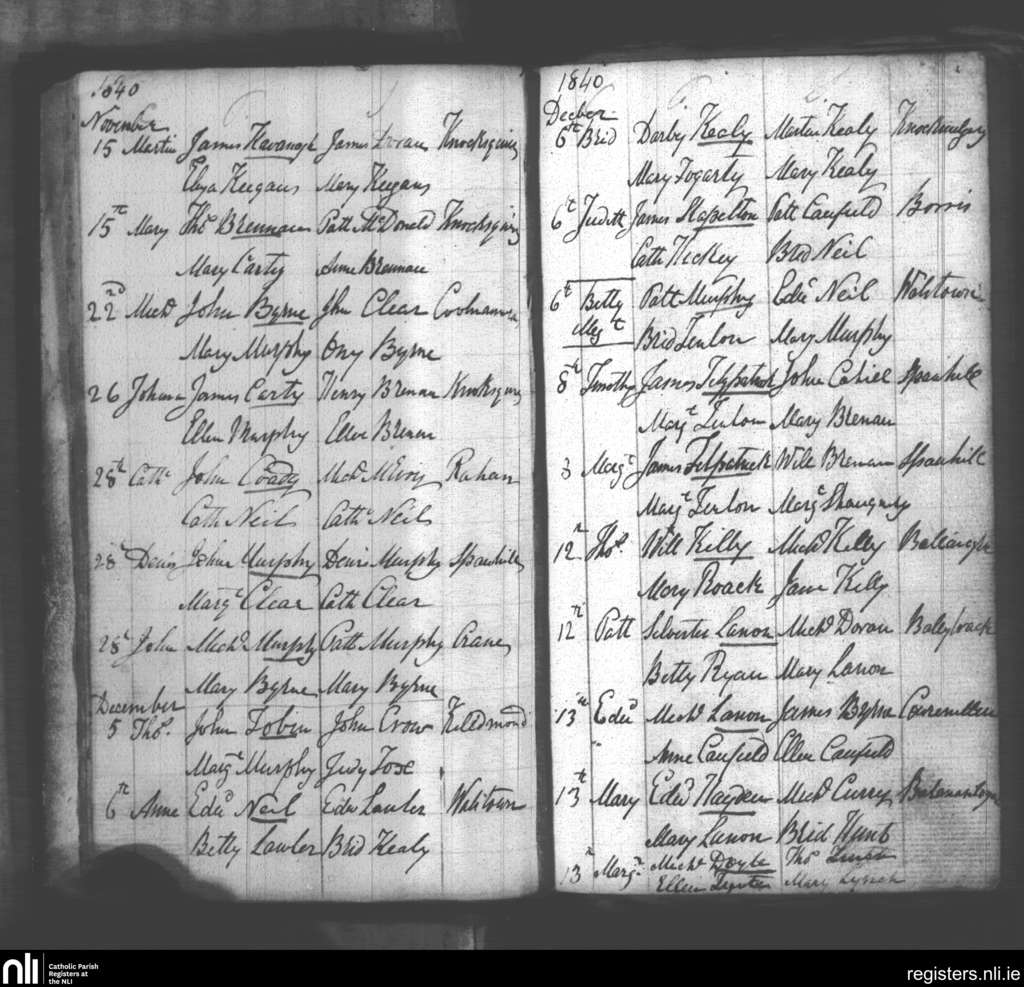 1840
November
15 Martin James Kavanagh James Doran Knocksquire
Elza Keegans Mary Keegans
15th Mary Thos Brennan Patt McDonald Knocksquire
Mary Carty Anne Brennan
22nd Michl John Byrne Jhn Clear Coolnamara
Mary Murphy Ony Byrne
26 Johana James Carty Henry Brennan Knocksquire
Ellen Murphy Brenan
28th Cath John Coady Michl Rahan
Cath Neil Cath Neil
28th Denis John Murphy Denis Murphy Spawhill
Margt Clear Cath Clear
28th John Michl Murphy Patt Murphy Crane
Mary Byrne Mary Byrne
December
5 Thos. John Tobin John Crow Killdmond
Margt Murphy Judy Foxe
6th Anne Edwd Neil Edwd Lawler Walstown
Betty Lawler Brid Kealy
1840
Decber
6th Brid Darby Kealy Martin Kealy
Mary Fogarty Mary Kealy
6th Judith James Stapelton Patt Caufield Borris
Cath Hickey Brid Neil
6th Betty Patt Murphy Edwd Neil Walstown
Brid Fenlon Mary Murphy
8th Timothy James Fitzpatrick John Cahill Spawhill
Margt Fenlon Mary Brenan
3 Margt James Fitzpatrick Will Brenan Spawhill
Margt Fenlon Margt
12th Thos. Will Kelly Michl Kelly
Mary Roack Jane Kelly
12th Patt Silvester Lanon Michl Doran Ballybrack
Betty Ryan Mary Lanon
13th Edwd Michl Lanon James Byrne
Anne Caufield Ellen Caufield
13th Mary Edwd Hayden Michl Curry
Mary Lanon Brid Hunt
13th Margt Michl Doyle Thos
Ellen Mary Lynch
nli
Catholic Parish
Registers at
the NLI
registers.nli.ie